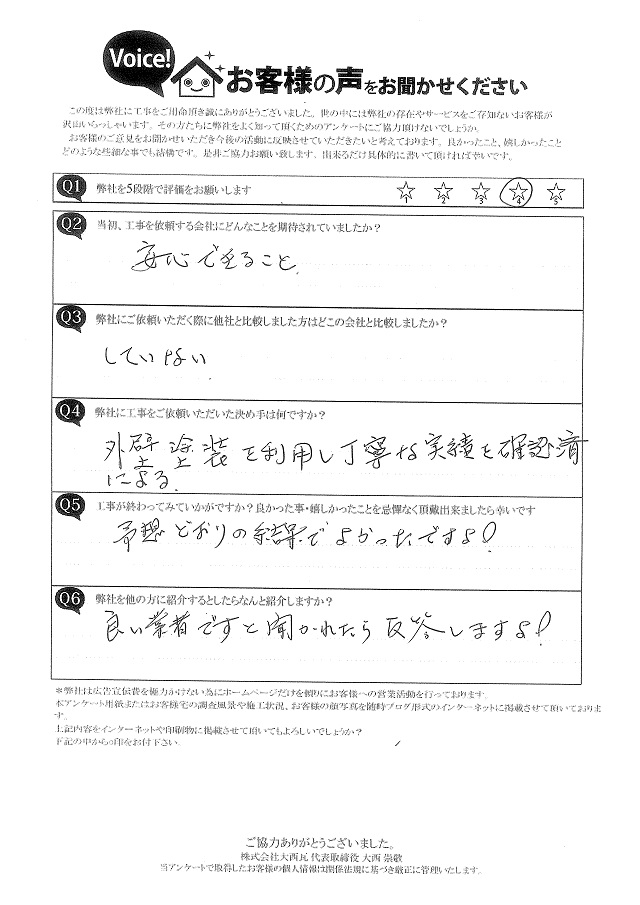 Voice!
お客様の声をお聞かせください
この度は弊社に工事をご用命頂き誠にありがとうございました。世の中には弊社の存在やサービスをご存知ないお客様が
沢山いらっしゃいます。その方たちに弊社をよく知って頂くためのアンケートにご協力頂けないでしょうか。
お客様のご意見をお聞かせいただき今後の活動に反映させていただきたいと考えております。良かったこと、嬉しかったこと
どのような些細な事でも結構です。是非ご協力お願い致します。出来るだけ具体的に書いて頂ければ幸いです。
Q1 弊社を5段階で評価をお願いします 1 2 3 4 5
Q2 当初、工事を依頼する会社にどんなことを期待されていましたか？
安心できること
Q3 弊社にご依頼いただく際に他社と比較しました方はどこの会社と比較しましたか？
していない
Q4 弊社に工事をご依頼いただいた決め手は何ですか？
外壁塗装を利用し丁寧な実績を確認済
による。
Q5 工事が終わってみていかがですか？良かった事・嬉しかったことを忌憚なく頂戴出来ましたら幸いです
予想どおりの結果でよかったですよ！
Q6 弊社を他の方に紹介するとしたらなんと紹介しますか？
良い業者ですと聞かれたら反答しますよ！
＊弊社は広告宣伝費を極力かけない為にホームページだけを頼りにお客様への営業活動を行っております。
＊アンケート用紙またはお客様宅の調査風景や施工状況、お客様の顔写真を随時ブログ形式のインターネットに掲載させて頂いておりま
す。
上記内容をインターネットや印刷物に掲載させて頂いてもよろしいでしょうか？
下記の中から○印をお付下さい。
ご協力ありがとうございました。
株式会社大西瓦 代表取締役 大西 崇敬
当アンケートで取得したお客様の個人情報は関係法規に基づき厳正に管理いたします。